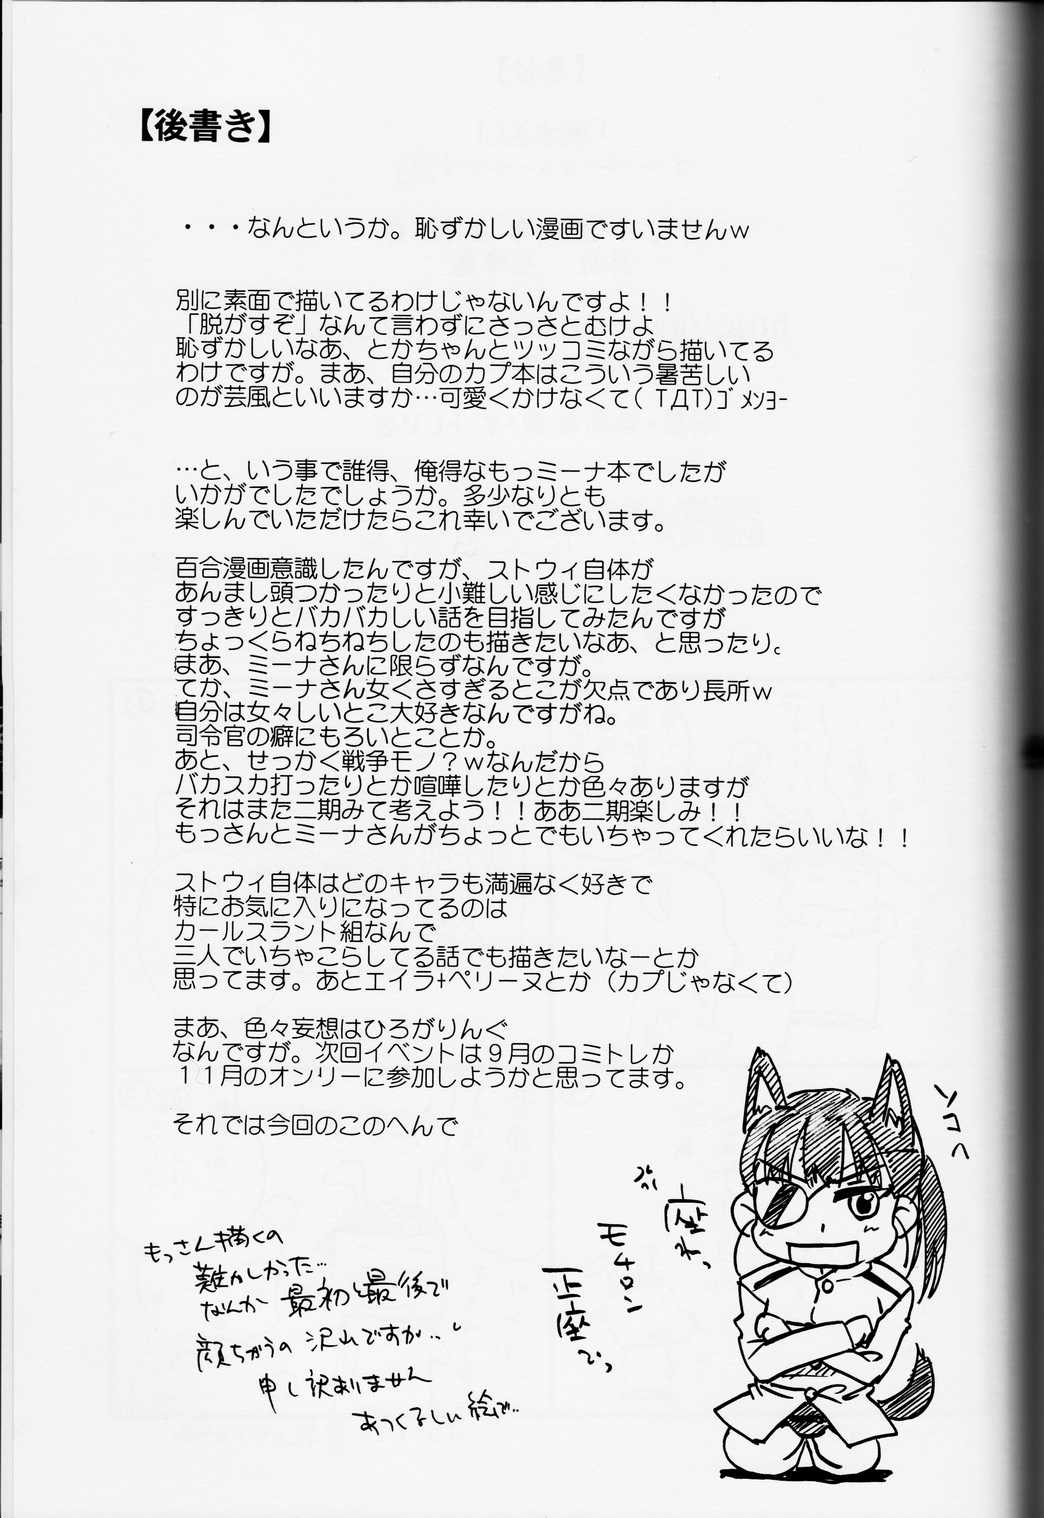 【後書き】
・・・なんというか。恥ずかしい漫画ですいませんｗ
別に素面で描いてるわけじゃないんですよ！！
「脱がすぞ」なんて言わずにさっさとむけよ
恥ずかしいなあ、とかちゃんとツッコミながら描いてる
わけですが。まあ、自分のカプ本はこういう暑苦しい
のが芸風といいますか…可愛くかけなくて( TДT)ｺﾞﾒﾝﾖｰ
…と、いう事で誰得、俺得なもっミーナ本でしたが
いかがでしたでしょうか。多少なりとも
楽しんでいただけたらこれ幸いでございます。
百合漫画意識したんですが、ストウィ自体が
あんまし頭つかったりと小難しい感じにしたくなかったので
すっきりとバカバカしい話を目指してみたんですが
ちょっくらねちねちしたのも描きたいなあ、と思ったり。
まあ、ミーナさんに限らずなんですが。
てか、ミーナさん女くさすぎるとこが欠点であり長所ｗ
自分は女々しいとこ大好きなんですがね。
司令官の癖にもろいとことか。
あと、せっかく戦争モノ？ｗなんだから
バカスカ打ったりとか喧嘩したりとか色々ありますが
それはまた二期みて考えよう！！ああ二期楽しみ！！
もっさんとミーナさんがちょっとでもいちゃってくれたらいいな！！
ストウィ自体はどのキャラも満遍なく好きで
特にお気に入りになってるのは
カールスラント組なんで
三人でいちゃこらしてる話でも描きたいなーとか
思ってます。あとエイラ+ペリーヌとか（カプじゃなくて）
まあ、色々妄想はひろがりんぐ
なんですが。次回イベントは９月のコミトレか
１１月のオンリーに参加しようかと思ってます。
それでは今回のこのへんで
ソコへ
座れっ
モチロン
正座でっ
もっさん描くの
難かしかった…
なんか最初と最後で
顔ちがうの沢山ですが…
申し訳ありません
あつくるしい絵で…